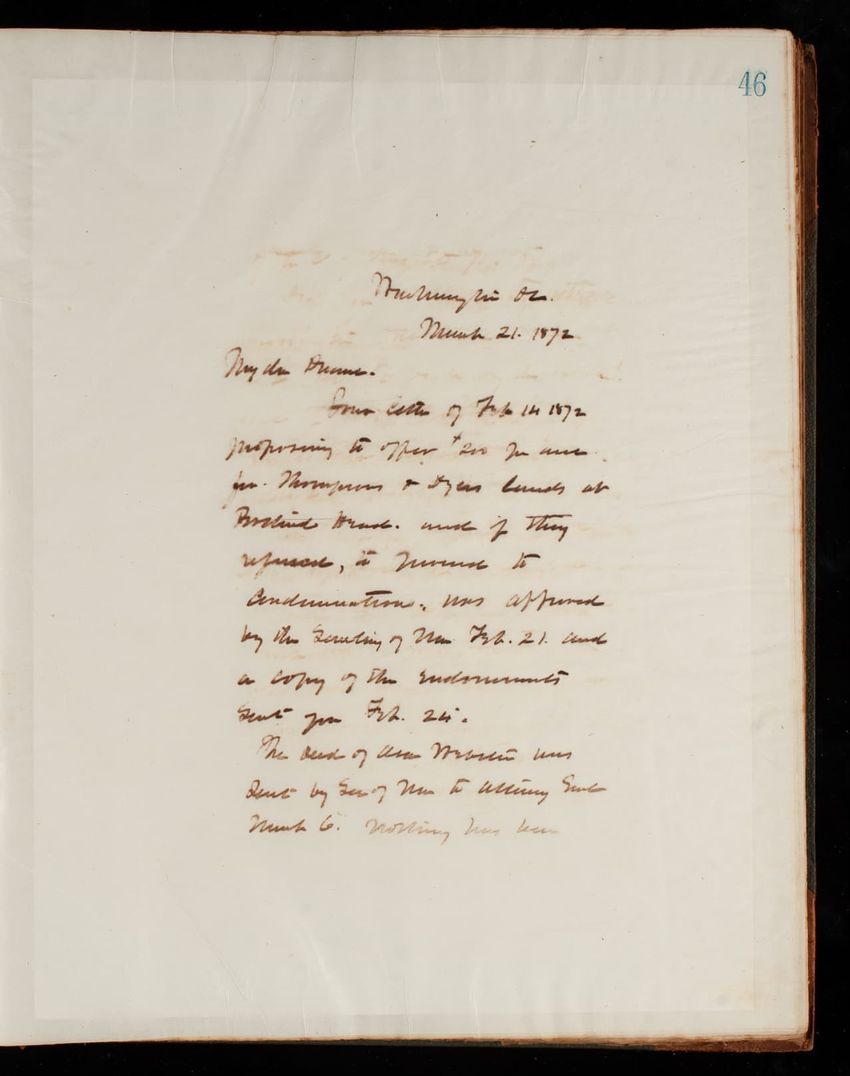 46
Washington DC.
March 21. 1872
My dear Duane.
Your letter of Feb 14 1872
proposing to offer $200 per acre
for Thompsons & Dyers lands at
Portland Head. and if they
refused, to proceed to
condemnation, was approved
by the Secretary of War Feb. 21. and
a copy of the endorsements
sent you Feb. 24.
The deed of Asa Webster was
sent by Sec of War to Attorney Genl
March 6. Nothing has been